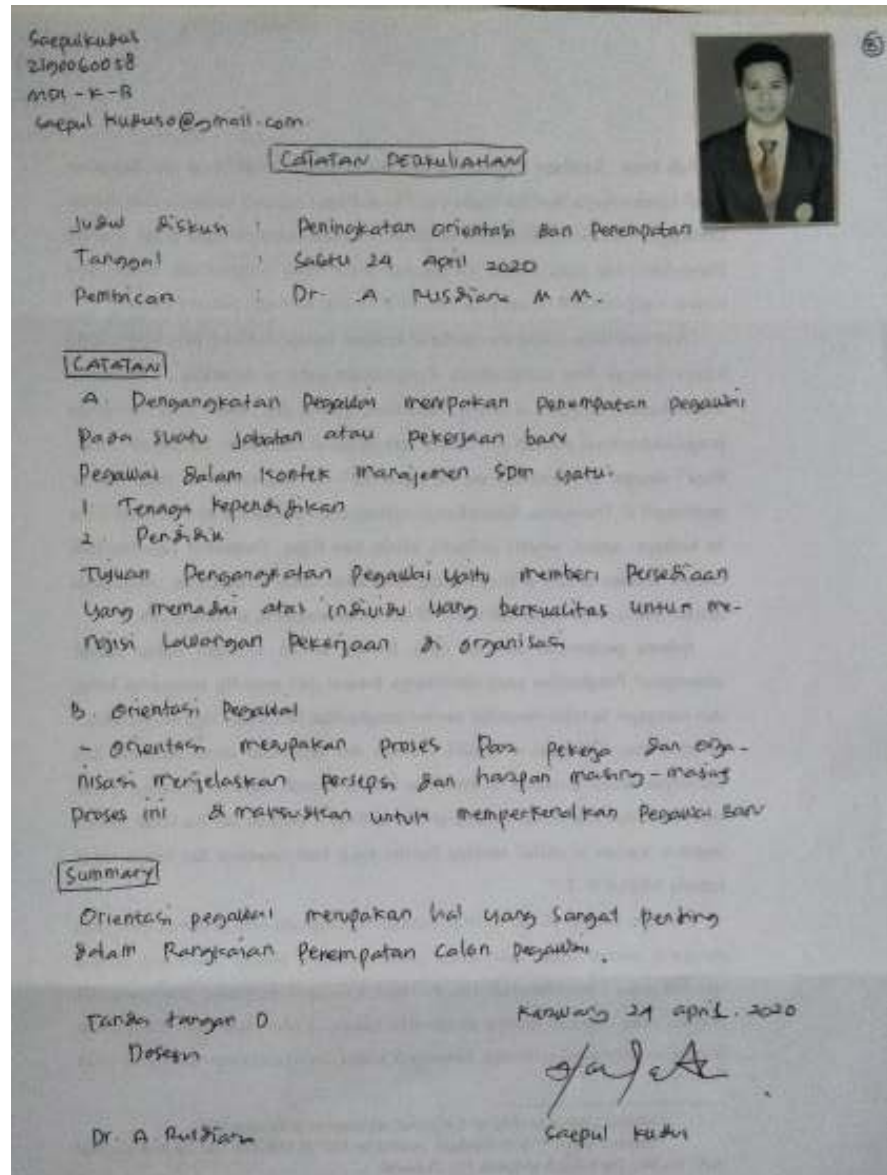 Saepulkudus
2190060058
MPI - K - B
Saepul Kuduso@gmail.com
CATATAN PERKULIAHAN
Judul diskusi : Peningkatan orientasi dan Penempatan
Tanggal : Sabtu 24 April 2020
Pembicara : Dr. A Rusdiana M M.
CATATAN
A. Pengangkatan Pegawai merupakan Penempatan pegawai
Pada suatu jabatan atau pekerjaan baru
Pegawai dalam kontek manajemen SDM yaitu.
1 Tenaga kependidikan
2 Pendidik
Tujuan Pengangkatan Pegawai yaitu memberi Persediaan
yang memadai atas individu yang berkualitas untuk me-
ngisi Lowongan Pekerjaan di organisasi
B. Orientasi Pegawai
- Orientasi merupakan proses Para pekerja dan orga-
nisasi menjelaskan persepsi dan harapan masing-masing
Proses ini dimaksudkan untuk memperkenalkan Pegawai baru
Summary
Orientasi pegawai merupakan hal yang sangat penting
dalam Rangkaian Penempatan Calon pegawai.
Tanda tangan D Karawang 24 april. 2020
Dosen
Dr. A Rusdiana Saepul Kudus